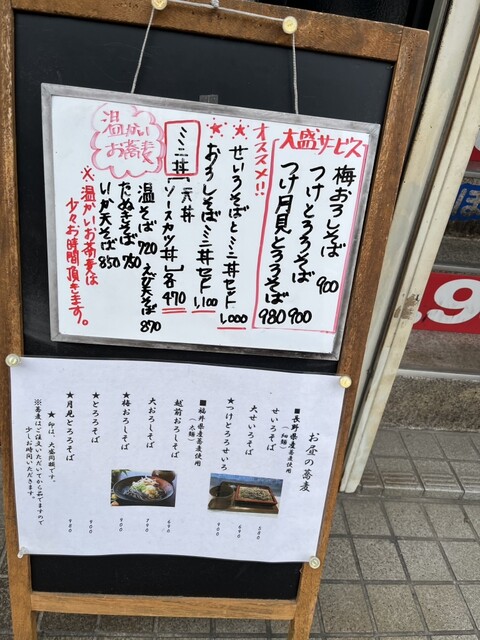 大盛サービス
梅おろしそば 900
つけとろろそば 900
つけ月見とろろそば 980
オススメ!!
★せいろそばとミニ丼セット 1,000
★おろしそばミニ丼セット 1,100
ミニ丼
天丼
ソースカツ丼
各470
温かい
お蕎麦
温そば 720
たぬきそば 750
いか天そば 850
えび天そば 870
※温かいお蕎麦は
少々お時間頂きます。
お昼の蕎麦
■長野県産蕎麦使用
(細麺)
せいろそば 580
大せいろそば 690
★つけとろろせいろ 900
■福井県産蕎麦使用
(太麺)
越前おろしそば 690
大おろしそば 790
★梅おろしそば 900
★とろろそば 900
★月見とろろそば 980
★印は、大盛同額です。
※蕎麦はご注文いただいてから茹でますので
少しお時間いただきます。
9